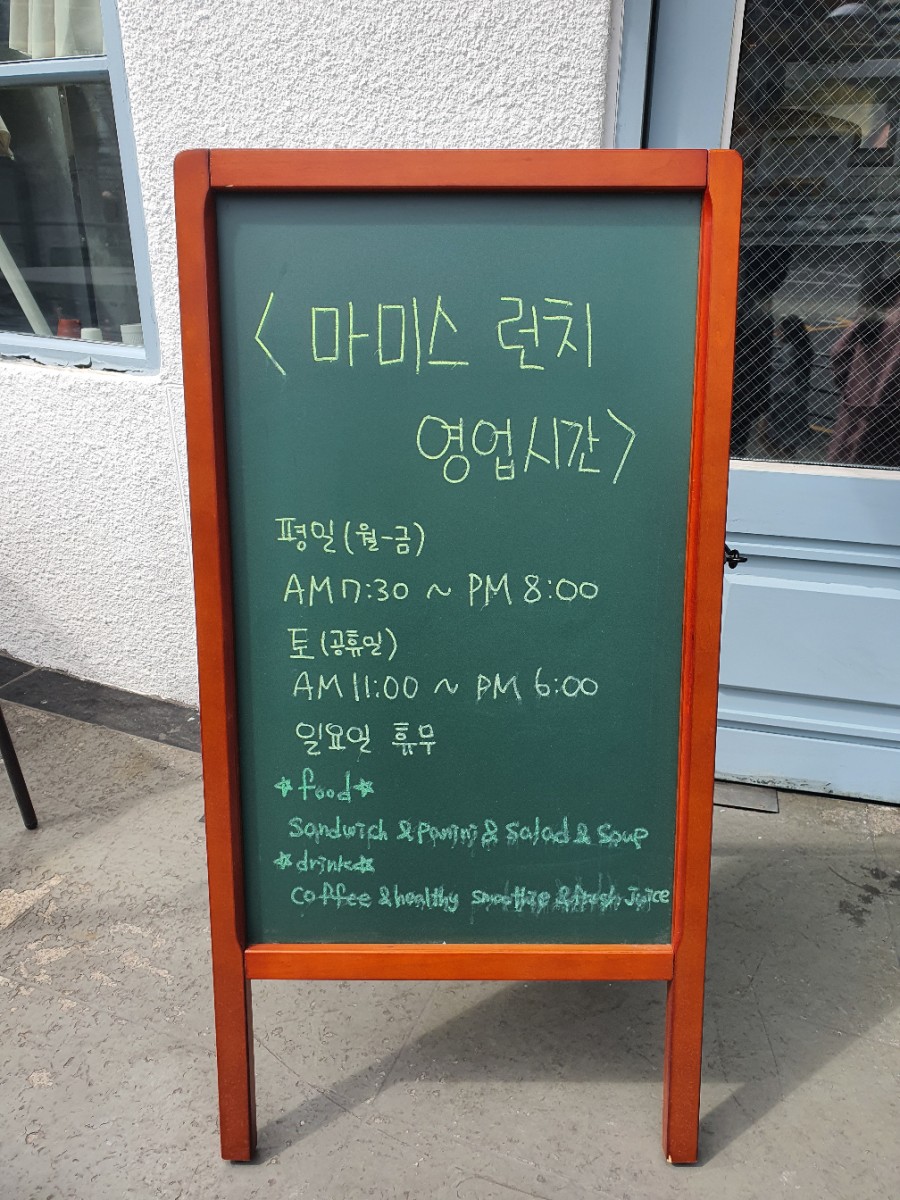 <마미스 런치
영업시간>
평일(월-금)
AM 7:30 ~ PM 8:00
토(공휴일)
AM 11:00 ~ PM 6:00
일요일 휴무
*food*
Sandwich & Panini & Salad & Soup
*drink*
coffee & healthy smoothie & fresh Juice